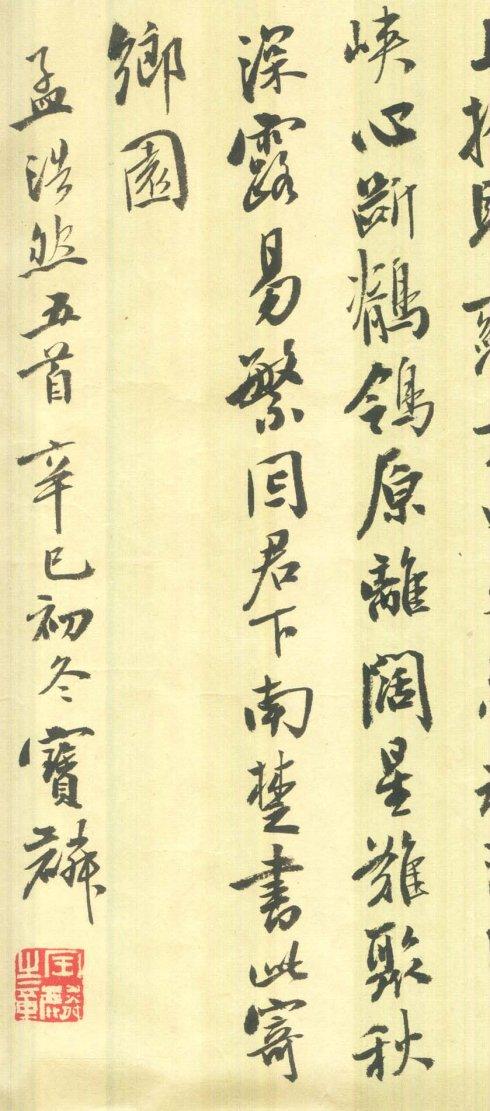 峽心斷鶺鴒原離闊星難聚秋
深露易繁因君下南楚書此寄
鄉園
孟浩然五首 辛巳初冬 寶